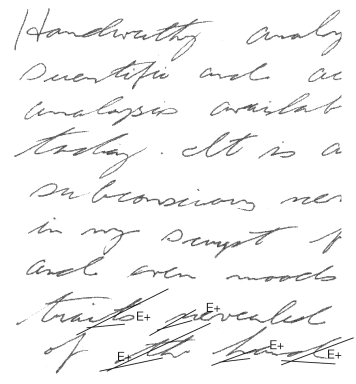 Handwriting analy
scientific and ac
analysis availab
today. It is a
subconscious ner
in my script f
and even moods
traits E+ revealed E+
of E+ the hand E+ E+